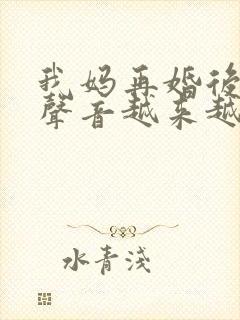 我妈再婚後
聲音越来越
水青淺